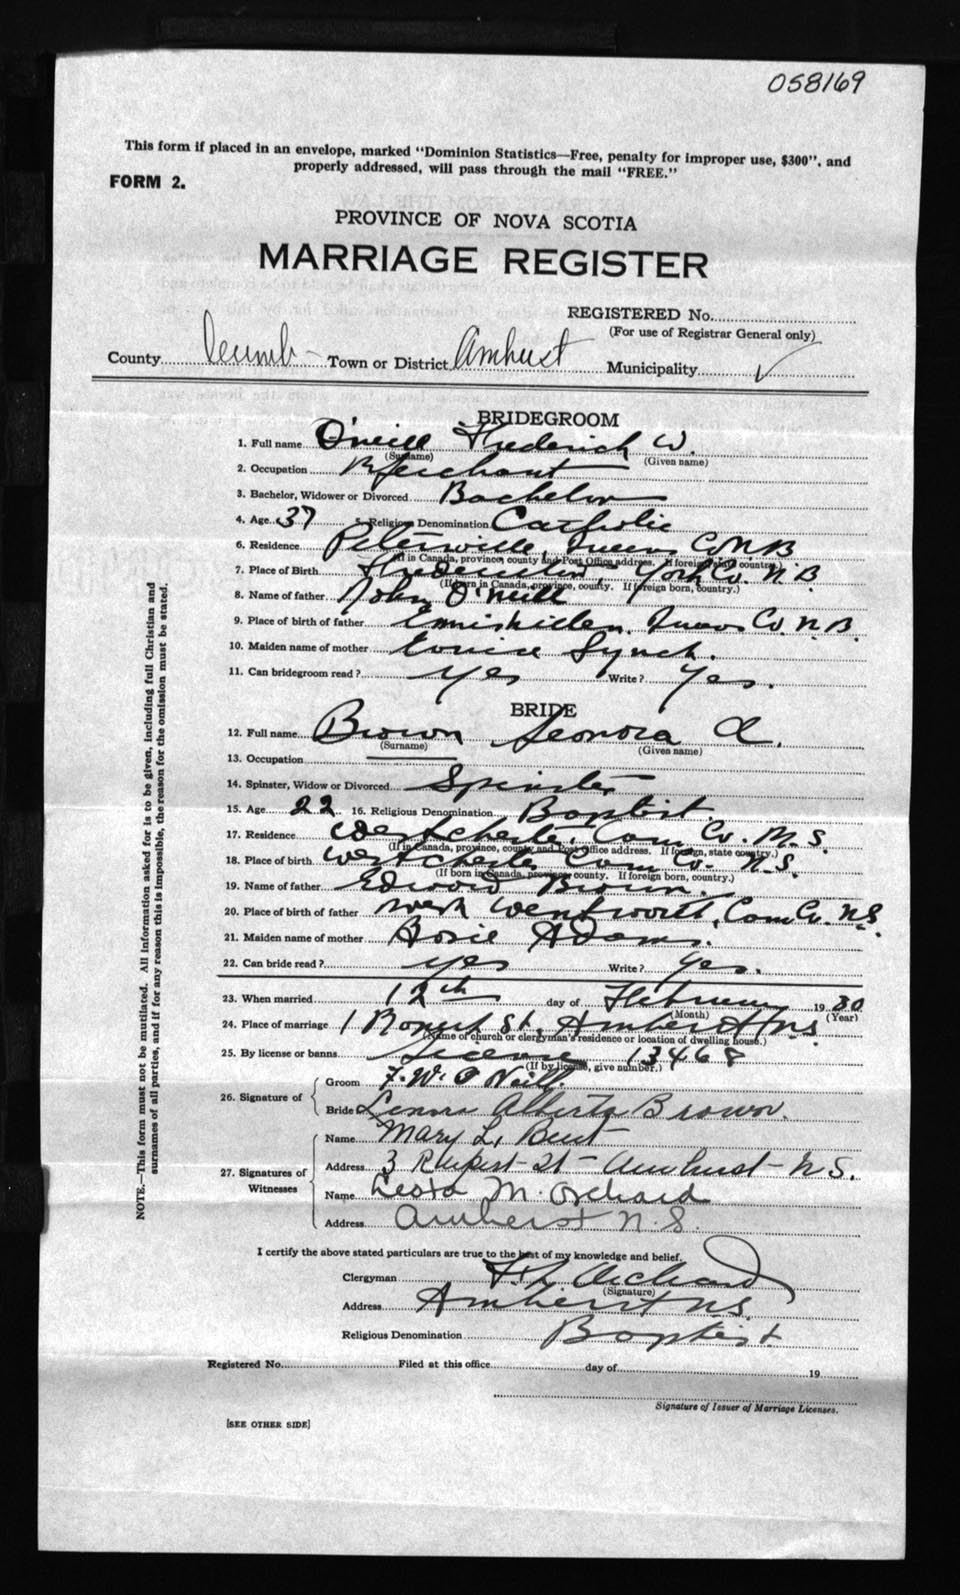 058169
This form if placed in an envelope, marked "Dominion Statistics—Free, penalty for improper use, $300", and
properly addressed, will pass through the mail "FREE."
FORM 2.
PROVINCE OF NOVA SCOTIA
MARRIAGE REGISTER
REGISTERED No.
(For use of Registrar General only)
County Cumb - Town or District Amherst Municipality ✓
BRIDEGROOM
1. Full name O'neill Frederick W.
(Surname) (Given name)
2. Occupation Merchant
3. Bachelor, Widower or Divorced Bachelor
4. Age 37 5. Religious Denomination Catholic
6. Residence Petersville, Queens Co N B
(If in Canada, province, county and Post Office address. If foreign, state country.)
7. Place of Birth Fredericton, York Co. N. B
(If born in Canada, province, county. If foreign born, country.)
8. Name of father John O'Neill
9. Place of birth of father Enniskillen, Queens Co. N. B.
10. Maiden name of mother Louise Lynch.
11. Can bridegroom read? Yes Write? Yes.
BRIDE
12. Full name Brown Leonora A.
(Surname) (Given name)
13. Occupation
14. Spinster, Widow or Divorced Spinster
15. Age 22 16. Religious Denomination Baptist.
17. Residence Westchester, Cum Co. N. S.
(If in Canada, province, county and Post Office address. If foreign, state country.)
18. Place of birth Westchester Cum Co. N. S.
(If born in Canada, province, county. If foreign born, country.)
19. Name of father Edward Brown.
20. Place of birth of father West Wentworth, Cum Co. N.S.
21. Maiden name of mother Rosie Adams.
22. Can bride read? Yes Write? Yes.
23. When married 12th day of February 1930
(Month) (Year)
24. Place of marriage 1 Rupert St. Amherst N.S.
(Name of church or clergyman's residence or location of dwelling house.)
25. By license or banns License 13468
(If by license, give number.)
26. Signature of
Groom F. W. O'Neill.
Bride Lenora Alberta Brown.
27. Signatures of Witnesses
Name Mary L. Bent
Address 3 Rupert - St - Amherst - N S.
Name Leota M. Orchard
Address Amherst N. S.
I certify the above stated particulars are true to the best of my knowledge and belief.
Clergyman Orchard
(Signature)
Address Amherst N.S.
Religious Denomination Baptist
Registered No. Filed at this office day of 19
Signature of Issuer of Marriage Licenses.
[SEE OTHER SIDE]
NOTE.—This form must not be mutilated. All information asked for is to be given, including full Christian and
surnames of all parties, and if for any reason this is impossible, the reason for the omission must be stated.